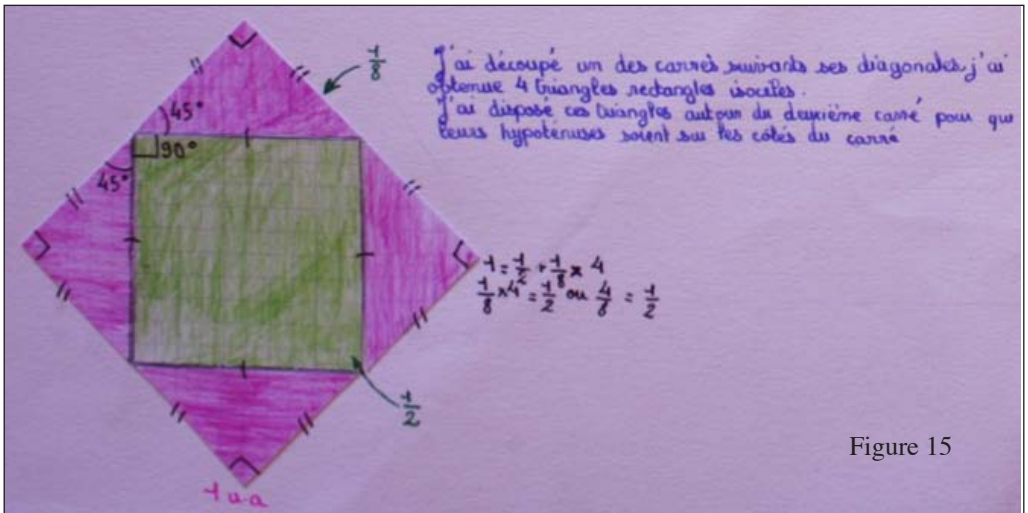 1/8
J'ai découpé un des carrés suivants ses diagonales, j'ai
obtenue 4 triangles rectangles isocèles.
J'ai disposé ces triangles autour du deuxième carré pour que
leurs hypoténuses soient sur les côtés du carré
45°
90°
45°
1 = 1/2 + 1/8 × 4
1/8 × 4 = 1/2 ou 4/8 = 1/2
1/2
Figure 15
1 u.a